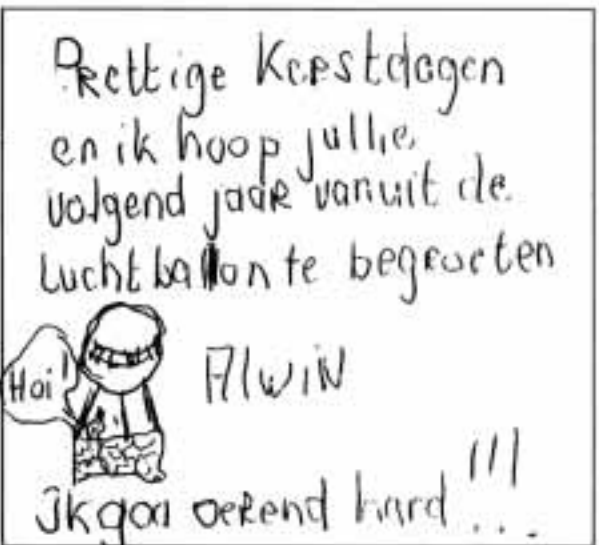 Prettige Kerstdagen
en ik hoop jullie
volgend jaar vanuit de
luchtballon te begroeten
Hoi!
Alwin
Ik ga oerend hard!!!